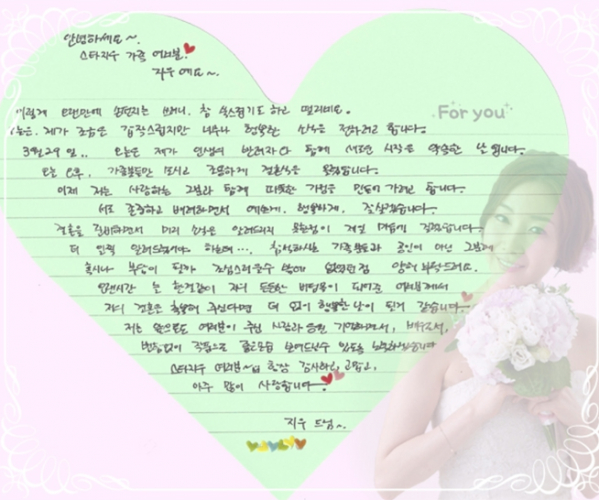 안녕하세요~.
스타지우 가족 여러분.
지우예요~.
For you
이렇게 오랜만에 손편지를 쓰려니, 참 쑥스럽기도 하고 떨리네요.
오늘은, 제가 조금은 갑작스럽지만 너무나 행복한 소식을 전하려고 합니다.
3월 29일.. 오늘은 제가 인생의 반려자와 함께 새로운 시작을 약속한 날입니다.
오늘 오후, 가족분들만 모시고 조용하게 결혼식을 올립니다.
이제 저는 사랑하는 그분과 함께 따뜻한 가정을 만들어 가려고 합니다.
서로 존중하고 배려하면서 예쁘게, 행복하게, 잘 살겠습니다.
결혼을 준비하면서 미리 소식을 알려드리지 못한점이 제일 마음에 걸렸습니다.
더 일찍 알려드렸어야 하는데..., 참석하시는 가족분들과 공인이 아닌 그분께
혹시나 부담이 될까 조심스러울수 밖에 없었던점 양해 부탁드려요.
오랜시간 늘 한결같이 저의 든든한 버팀목이 되어준 여러분께서
저의 결혼을 축복해 주신다면 더 없이 행복한 날이 될거 같습니다.
저는 앞으로도 여러분이 주신 사랑과 응원 기억하면서, 배우로서,
변함없이 작품으로 좋은모습 보여드릴수 있도록 노력하겠습니다.
스타지우 여러분~ 항상 감사하고, 고맙고,
아주 많이 사랑합니다.
지우 드림~.